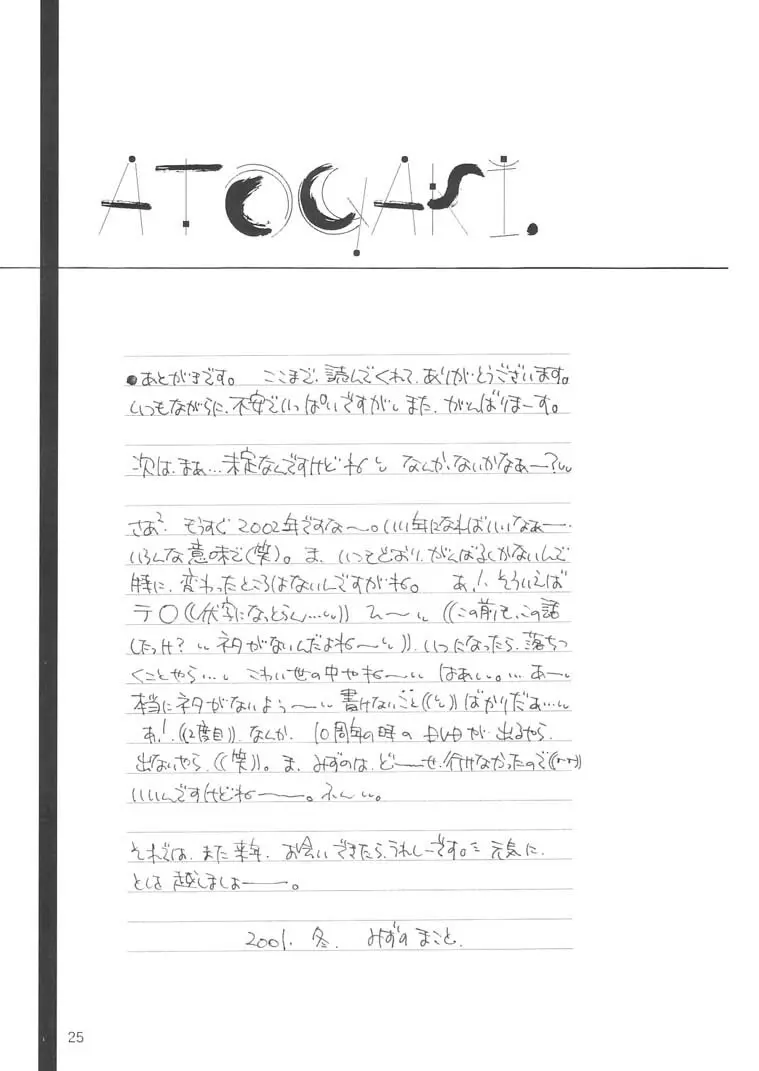 ATOGAKI.
●あとがきです。 ここまで、読んでくれて、ありがとうございます。
いつもながらに、不安でいっぱいですが、また、がんばりまーす。
次は、まぁ…未定なんですけどね なんか、ないかなぁー?
さあ² もうすぐ2002年ですな〜。いい年になればいいなぁー
いろんな意味で(笑)。ま、いつもどおり、がんばるしかないんで
特に、変わったところはないんですがね。 あ!、そういえば
テ○((伏字になっとらん…))ひ〜 ((この前も、この話
したっけ? ネタがないんだよね〜))、いつになったら、落ちつ
くことやら… こわい世の中やね〜 はぁ…あー
本当にネタがないよぅ〜 書けないこと(())ばかりだぁ…
あ!、((2度目)) なんか、10周年の時のDVDが、出るやら
出ないやら、((笑))。ま、みずのは、ど──せ、行けなかったので
いいんですけどね───。ふん。
それでは、また来年、お会いできたら、うれしーです。元気に、
とし越しましょ───。
2001. 冬. みずの まこと.
25